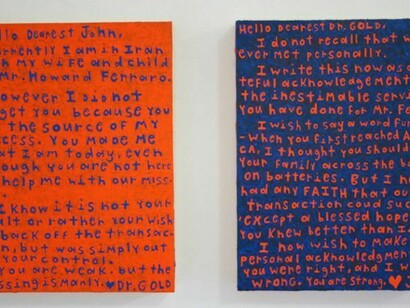 llo Dearest John,
urrently I am in Iran
th my wife and child
Mr. Howard Ferraro.
owever I did not
get you because you
the source of my
cess. You made me
at I am today, even
ough you are not here
help me with our miss-
.
I know it is not your
ult or rather your wish
back off the transac-
n, but was simply out
your control.
you are weak. but the
ssing is manly. ♥ Dr. GOLD
Hello Dearest Dr. GOLD,
I do not recall that w
ever met personally.
I write this now as a
teful acknowledgement
the inestimable servi
you have done for Mr. Fe
I wish to say a word fur
when you first reached A
ca. I thought you should
your family across the b
on batteries. But I n
had any FAITH that ou
transaction could suc
except a blessed hope
you knew better than I.
I now wish to make
personal acknowledgme
you were right, and I w
wrong. You are strong. ♥